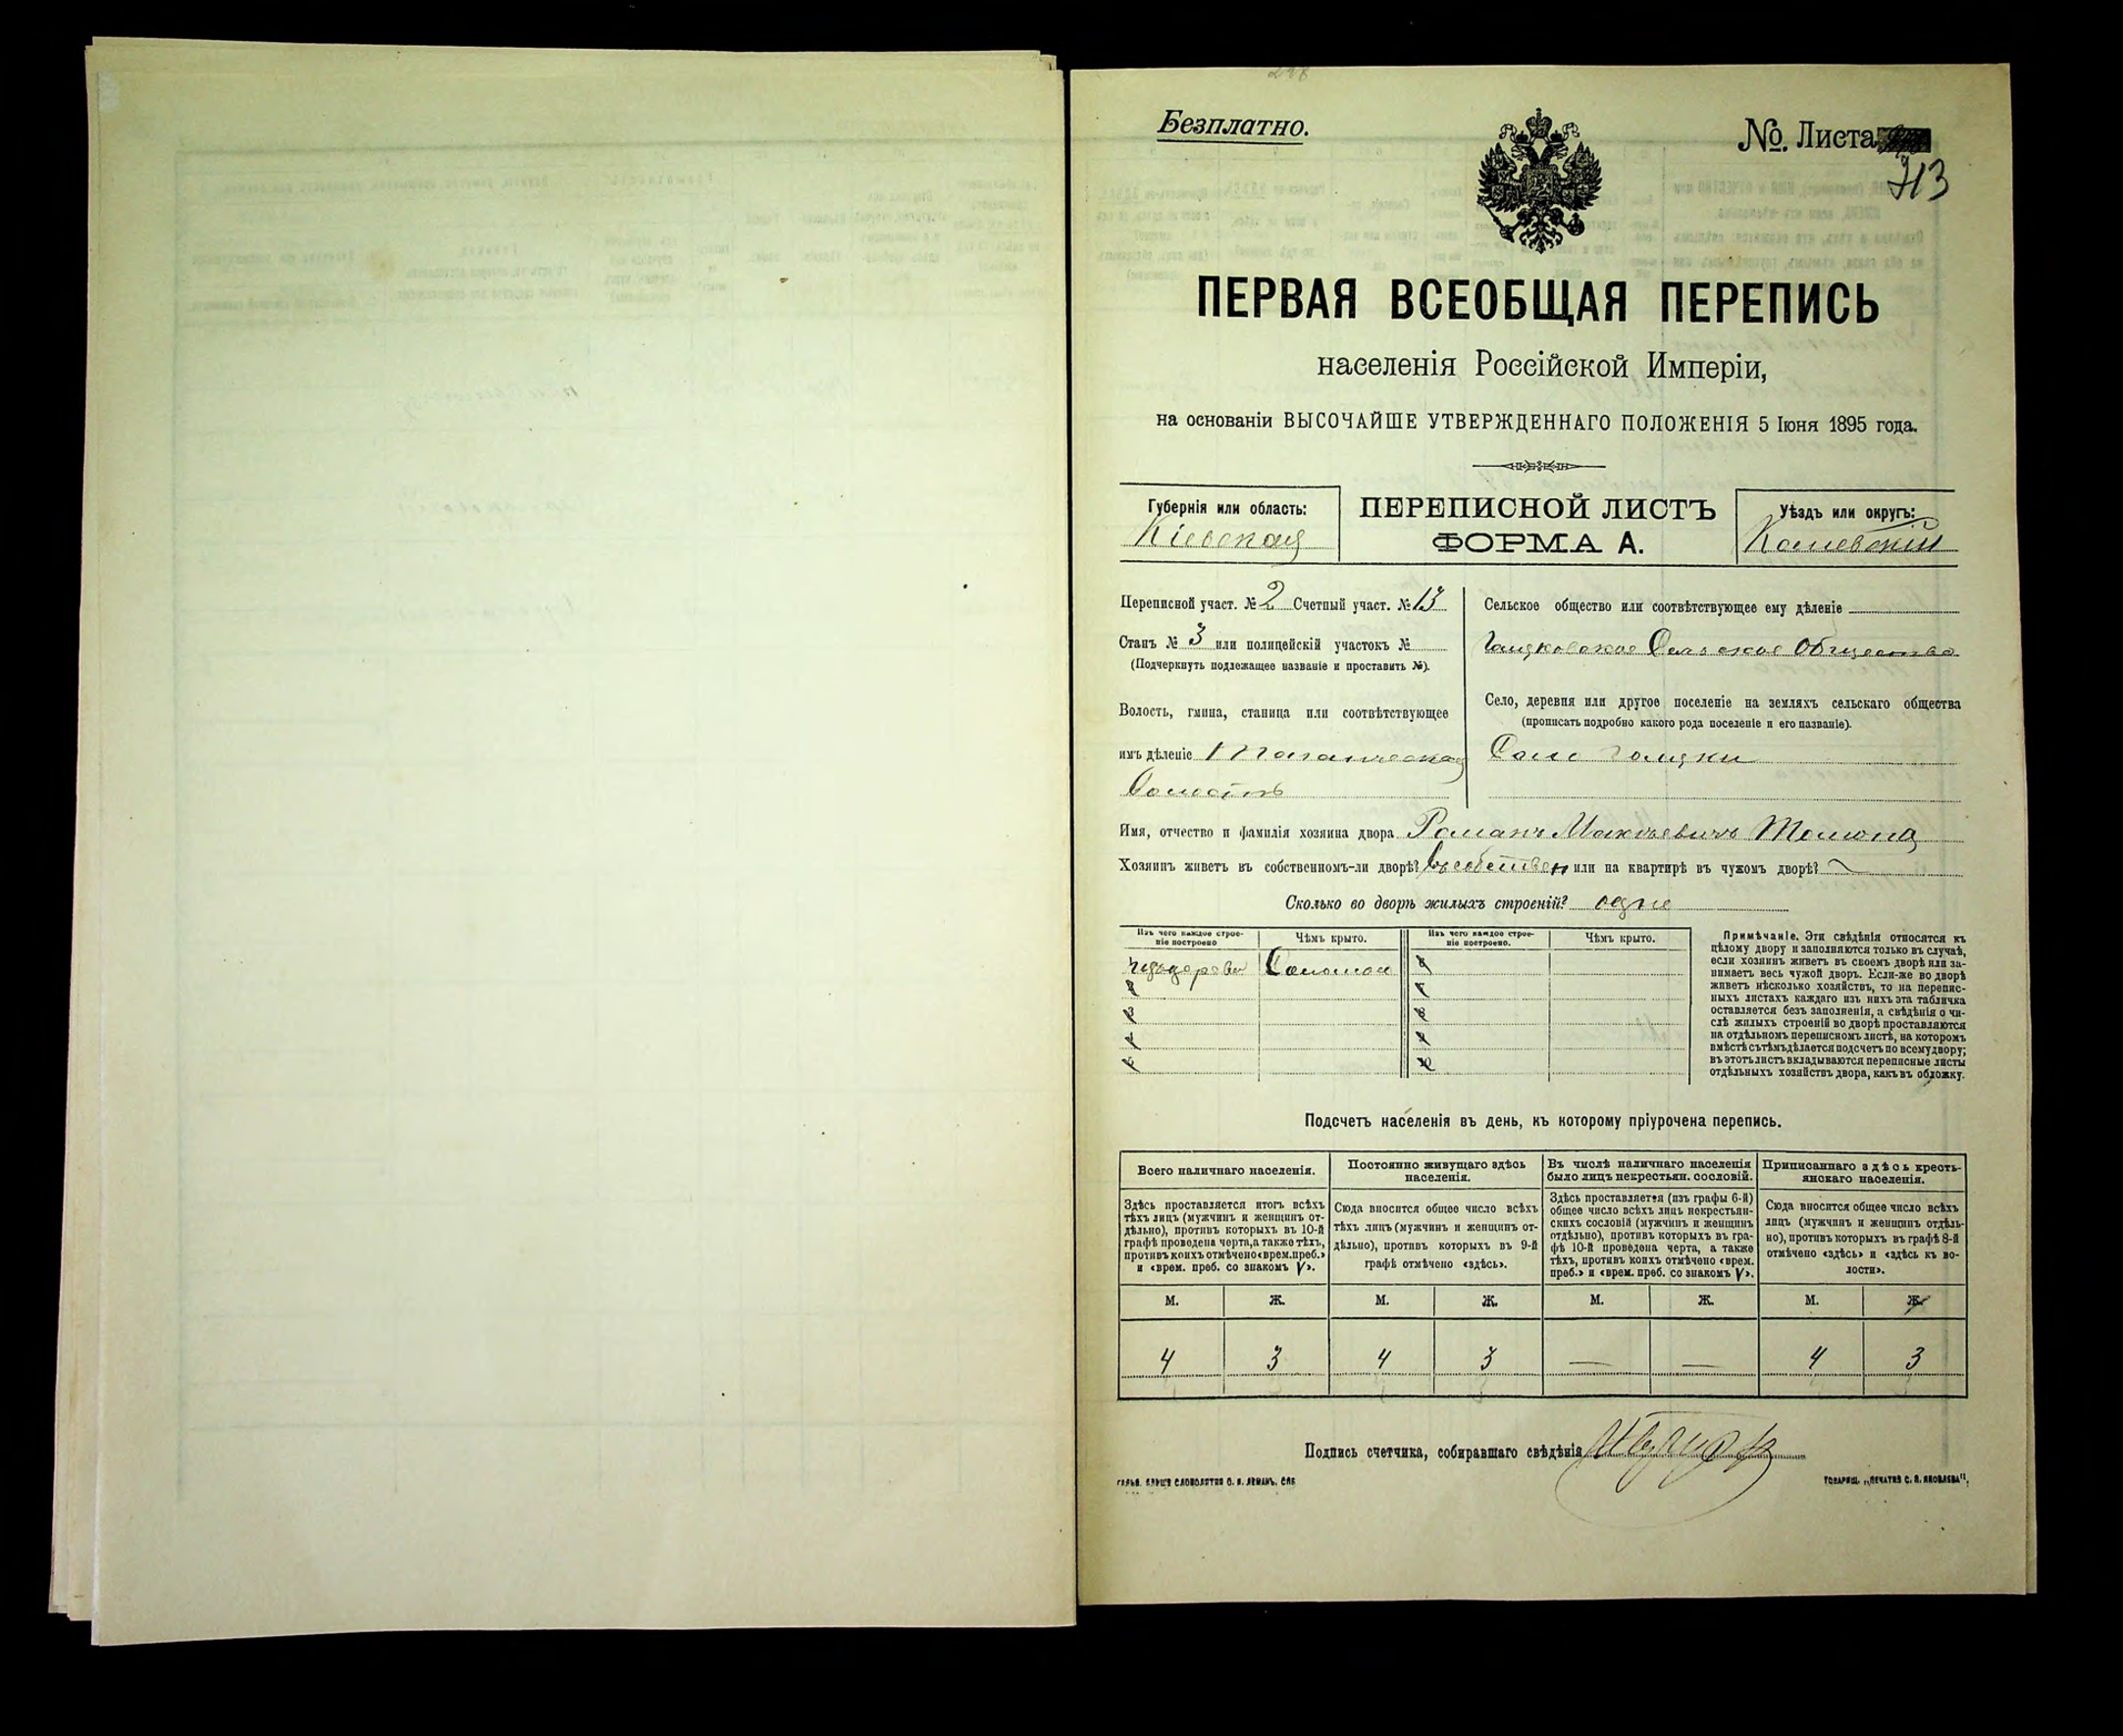 Безплатно.
№. Листа
713
ПЕРВАЯ ВСЕОБЩАЯ ПЕРЕПИСЬ
населенія Россійской Имперіи,
на основаніи ВЫСОЧАЙШЕ УТВЕРЖДЕННАГО ПОЛОЖЕНІЯ 5 Іюня 1895 года.
Губернія или область:
Кіевская
ПЕРЕПИСНОЙ ЛИСТЪ
ФОРМА А.
Уѣздъ или округъ:
Каневскій
Переписной участ. № 2 Счетный участ. № 13
Станъ № 3 или полицейскій участокъ №
(Подчеркнуть подлежащее названіе и проставить №).
Волость, гмина, станица или соотвѣтствующее
имъ дѣленіе Таганческая
Волость
Сельское общество или соотвѣтствующее ему дѣленіе
Сельское Общество
Село, деревня или другое поселеніе на земляхъ сельскаго общества
(прописать подробно какого рода поселеніе и его названіе).
Село
Имя, отчество и фамилія хозяина двора Романъ
Хозяинъ живетъ въ собственномъ-ли дворѣ? Въ собствен или на квартирѣ въ чужомъ дворѣ?
Сколько во дворѣ жилыхъ строеній? одно
Изъ чего каждое строе-
ніе построено
Чѣмъ крыто.
Изъ чего каждое строе-
ніе построено.
Чѣмъ крыто.
изъ дерева Соломою 6
2 7
3 8
4 9
5 10
Примѣчаніе. Эти свѣдѣнія относятся къ
цѣлому двору и заполняются только въ случаѣ,
если хозяинъ живетъ въ своемъ дворѣ или за-
нимаетъ весь чужой дворъ. Если-же во дворѣ
живетъ нѣсколько хозяйствъ, то на перепис-
ныхъ листахъ каждаго изъ нихъ эта табличка
оставляется безъ заполненія, а свѣдѣнія о чи-
слѣ жилыхъ строеній во дворѣ проставляются
на отдѣльномъ переписномъ листѣ, на которомъ
вмѣстѣ съ тѣмъ дѣлается подсчетъ по всему двору;
въ этотъ листъ вкладываются переписные листы
отдѣльныхъ хозяйствъ двора, какъ въ обложку.
Подсчетъ населенія въ день, къ которому пріурочена перепись.
Всего наличнаго населенія.
Здѣсь проставляется итогъ всѣхъ
тѣхъ лицъ (мужчинъ и женщинъ от-
дѣльно), противъ которыхъ въ 10-й
графѣ проведена черта, а также тѣхъ,
противъ коихъ отмѣчено «врем. преб.»
и «врем. преб. со знакомъ V».
Постоянно живущаго здѣсь
населенія.
Сюда вносится общее число всѣхъ
тѣхъ лицъ (мужчинъ и женщинъ от-
дѣльно), противъ которыхъ въ 9-й
графѣ отмѣчено «здѣсь».
Въ числѣ наличнаго населенія
было лицъ некрестьян. сословій.
Здѣсь проставляется (изъ графы 6-й)
общее число всѣхъ лицъ некрестьян-
скихъ сословій (мужчинъ и женщинъ
отдѣльно), противъ которыхъ въ гра-
фѣ 10-й проведена черта, а также
тѣхъ, противъ коихъ отмѣчено «врем.
преб.» и «врем. преб. со знакомъ V».
Приписаннаго здѣсь кресть-
янскаго населенія.
Сюда вносится общее число всѣхъ
лицъ (мужчинъ и женщинъ отдѣль-
но), противъ которыхъ въ графѣ 8-й
отмѣчено «здѣсь» и «здѣсь къ во-
лости».
М. Ж. М. Ж. М. Ж. М. Ж.
4 3 4 3 — — 4 3
Подпись счетчика, собиравшаго свѣдѣнія
СЛОВОЛИТНЯ О. И. ЛЕМАНЪ. СПБ
ТОВАРИЩ. „ПЕЧАТНЯ С. П. ЯКОВЛЕВА".